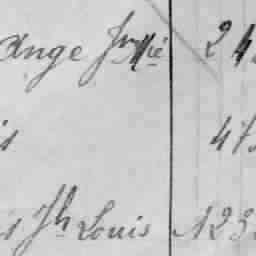 ange Jn Mie 24
s 47
s Jh Louis 123